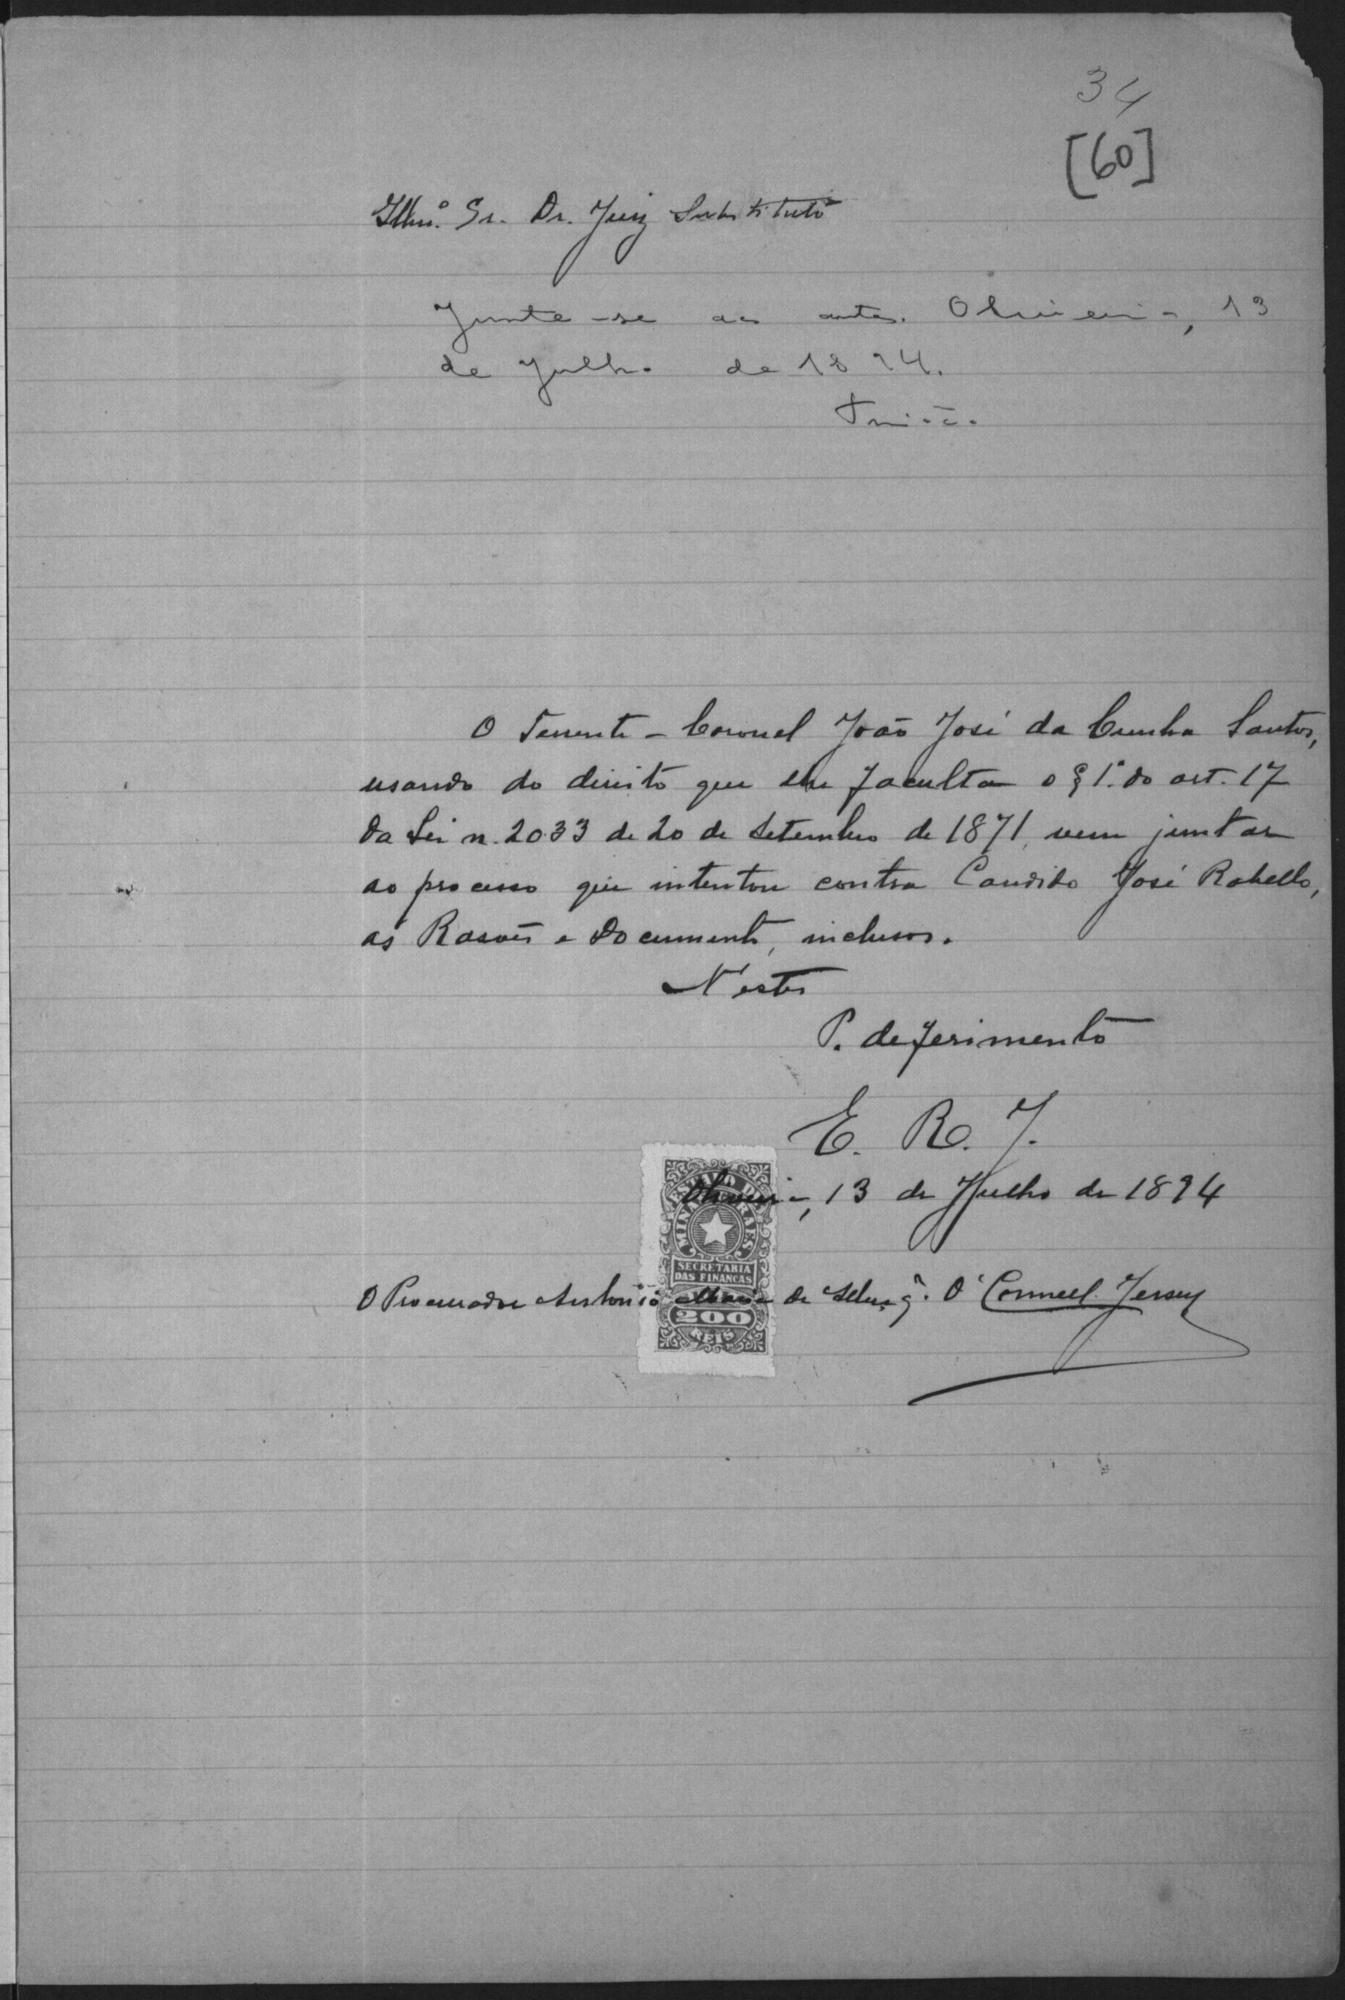 34
[60]
Illmo. Sr. Dr. Juiz Substituto
Junte-se aos autos. Oliveira, 13
de Julho de 1894.
O Tenente-Coronel João José da Cunha Santos,
usando do direito que lhe faculta o § 1º do art. 17
da Lei n. 2033 de 20 de Setembro de 1871, vem juntar
ao processo que intentou contra Candido José Rabello,
as Rasões e Documentos inclusos.
N'estes
P. deferimento
E. R. J.
Oliveira, 13 de Julho de 1894
ESTADO DE
MINAS GERAES
SECRETARIA
DAS FINANÇAS
200
REIS
O Procurador Antonio de O'Connell Jersey